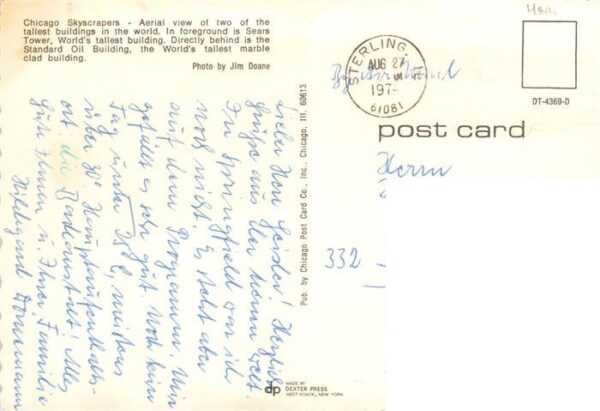 Chicago Skyscrapers - Aerial view of two of the
tallest buildings in the world. In foreground is Sears
Tower, World's tallest building. Directly behind is the
Standard Oil Building, the World's tallest marble
clad building.
Photo by Jim Doane
Lieber Herr Geisler! Herzliche
Grüße aus der neuen Welt.
In Springfield war ich
noch nicht. Es steht aber
auf dem Programm. Mir
gefällt es sehr gut. Noch kein
Tag unter 25°C, meistens
über 30° Hauptaufenthalts-
ort: die Badeanstalt! Alles
Gute Ihnen u. Ihrer Familie
Hildegard
Pub. by Chicago Post Card Co., Inc., Chicago, Ill. 60613
MADE BY
DEXTER PRESS
WEST NYACK, NEW YORK
dp
STERLING, IL
AUG 27
197
61081
By Air Mail
DT-4369-D
post card
Herrn
332